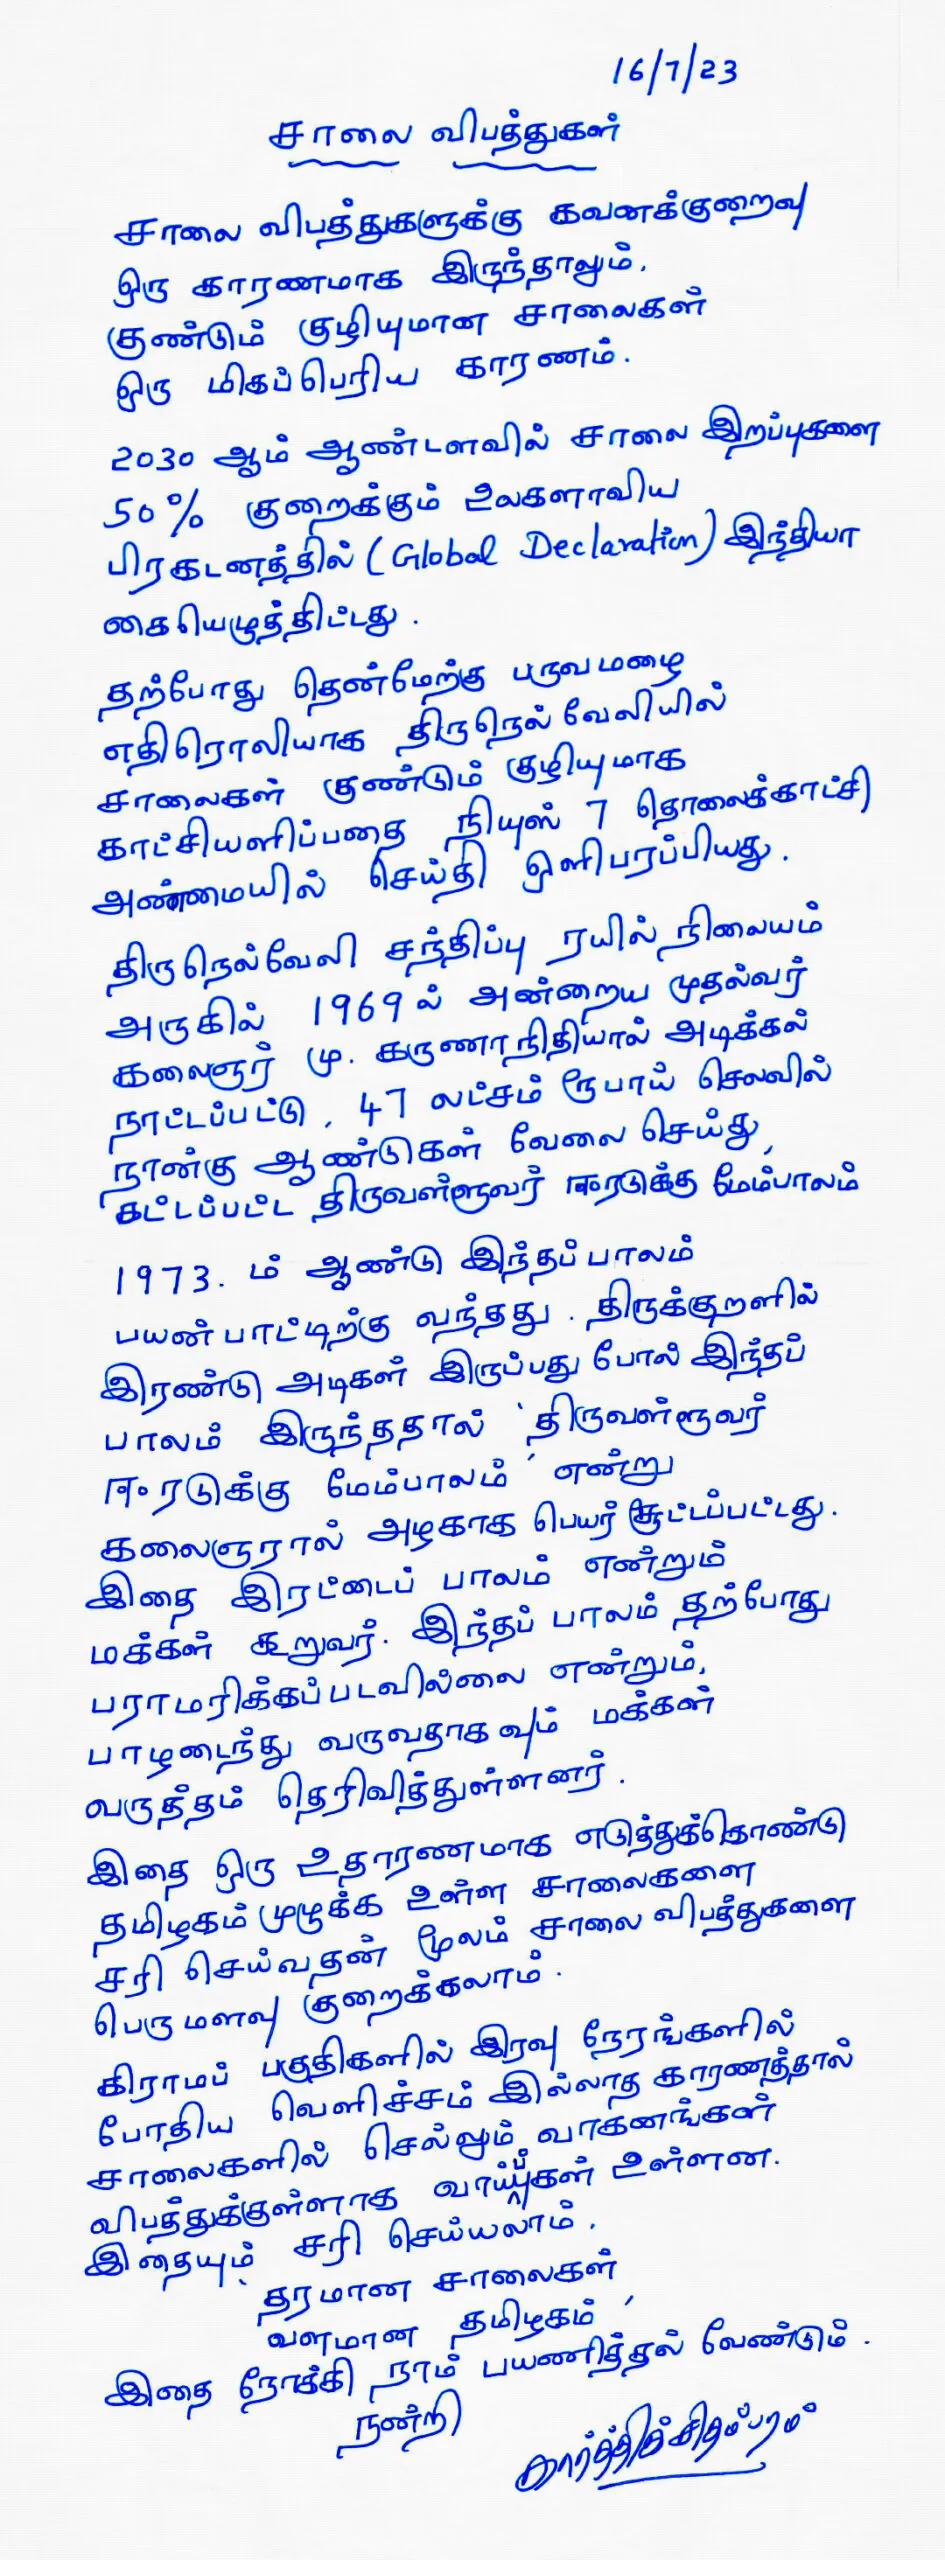 16/7/23
சாலை விபத்துகள்
சாலை விபத்துகளுக்கு கவனக்குறைவு
ஒரு காரணமாக இருந்தாலும்,
குண்டும் குழியுமான சாலைகள்
ஒரு மிகப்பெரிய காரணம்.
2030 ஆம் ஆண்டளவில் சாலை இறப்புகளை
50% குறைக்கும் உலகளாவிய
பிரகடனத்தில் (Global Declaration) இந்தியா
கையெழுத்திட்டது.
தற்போது தென்மேற்கு பருவமழை
எதிரொலியாக திருநெல்வேலியில்
சாலைகள் குண்டும் குழியுமாக
காட்சியளிப்பதை நியுஸ் 7 தொலைக்காட்சி
அண்மையில் செய்தி ஒளிபரப்பியது.
திருநெல்வேலி சந்திப்பு ரயில் நிலையம்
அருகில் 1969ல் அன்றைய முதல்வர்
கலைஞர் மு. கருணாநிதியால் அடிக்கல்
நாட்டப்பட்டு, 47 லட்சம் ரூபாய் செலவில்
நான்கு ஆண்டுகள் வேலை செய்து,
கட்டப்பட்ட திருவள்ளூவர் ஈரடுக்கு மேம்பாலம்
1973. ம் ஆண்டு இந்தப்பாலம்
பயன்பாட்டிற்கு வந்தது. திருக்குறளில்
இரண்டு அடிகள் இருப்பது போல் இந்தப்
பாலம் இருந்ததால் 'திருவள்ளூவர்
ஈரடுக்கு மேம்பாலம்' என்று
கலைஞரால் அழகாக பெயர் சூட்டப்பட்டது.
இதை இரட்டைப் பாலம் என்றும்
மக்கள் கூறுவர். இந்தப் பாலம் தற்போது
பராமரிக்கப்படவில்லை என்றும்,
பாழடைந்து வருவதாகவும் மக்கள்
வருத்தம் தெரிவித்துள்ளனர்.
இதை ஒரு உதாரணமாக எடுத்துக்கொண்டு
தமிழகம் முழுக்க உள்ள சாலைகளை
சரி செய்வதன் மூலம் சாலை விபத்துகளை
பெருமளவு குறைக்கலாம்.
கிராமப் பகுதிகளில் இரவு நேரங்களில்
போதிய வெளிச்சம் இல்லாத காரணத்தால்
சாலைகளில் செல்லும் வாகனங்கள்
விபத்துக்குள்ளாக வாய்ப்புகள் உள்ளன.
இதையும் சரி செய்யலாம்.
'தரமான சாலைகள்
வளமான தமிழகம்'
இதை நோக்கி நாம் பயணித்தல் வேண்டும்.
நன்றி
கார்த்திக்சிதம்பரம்